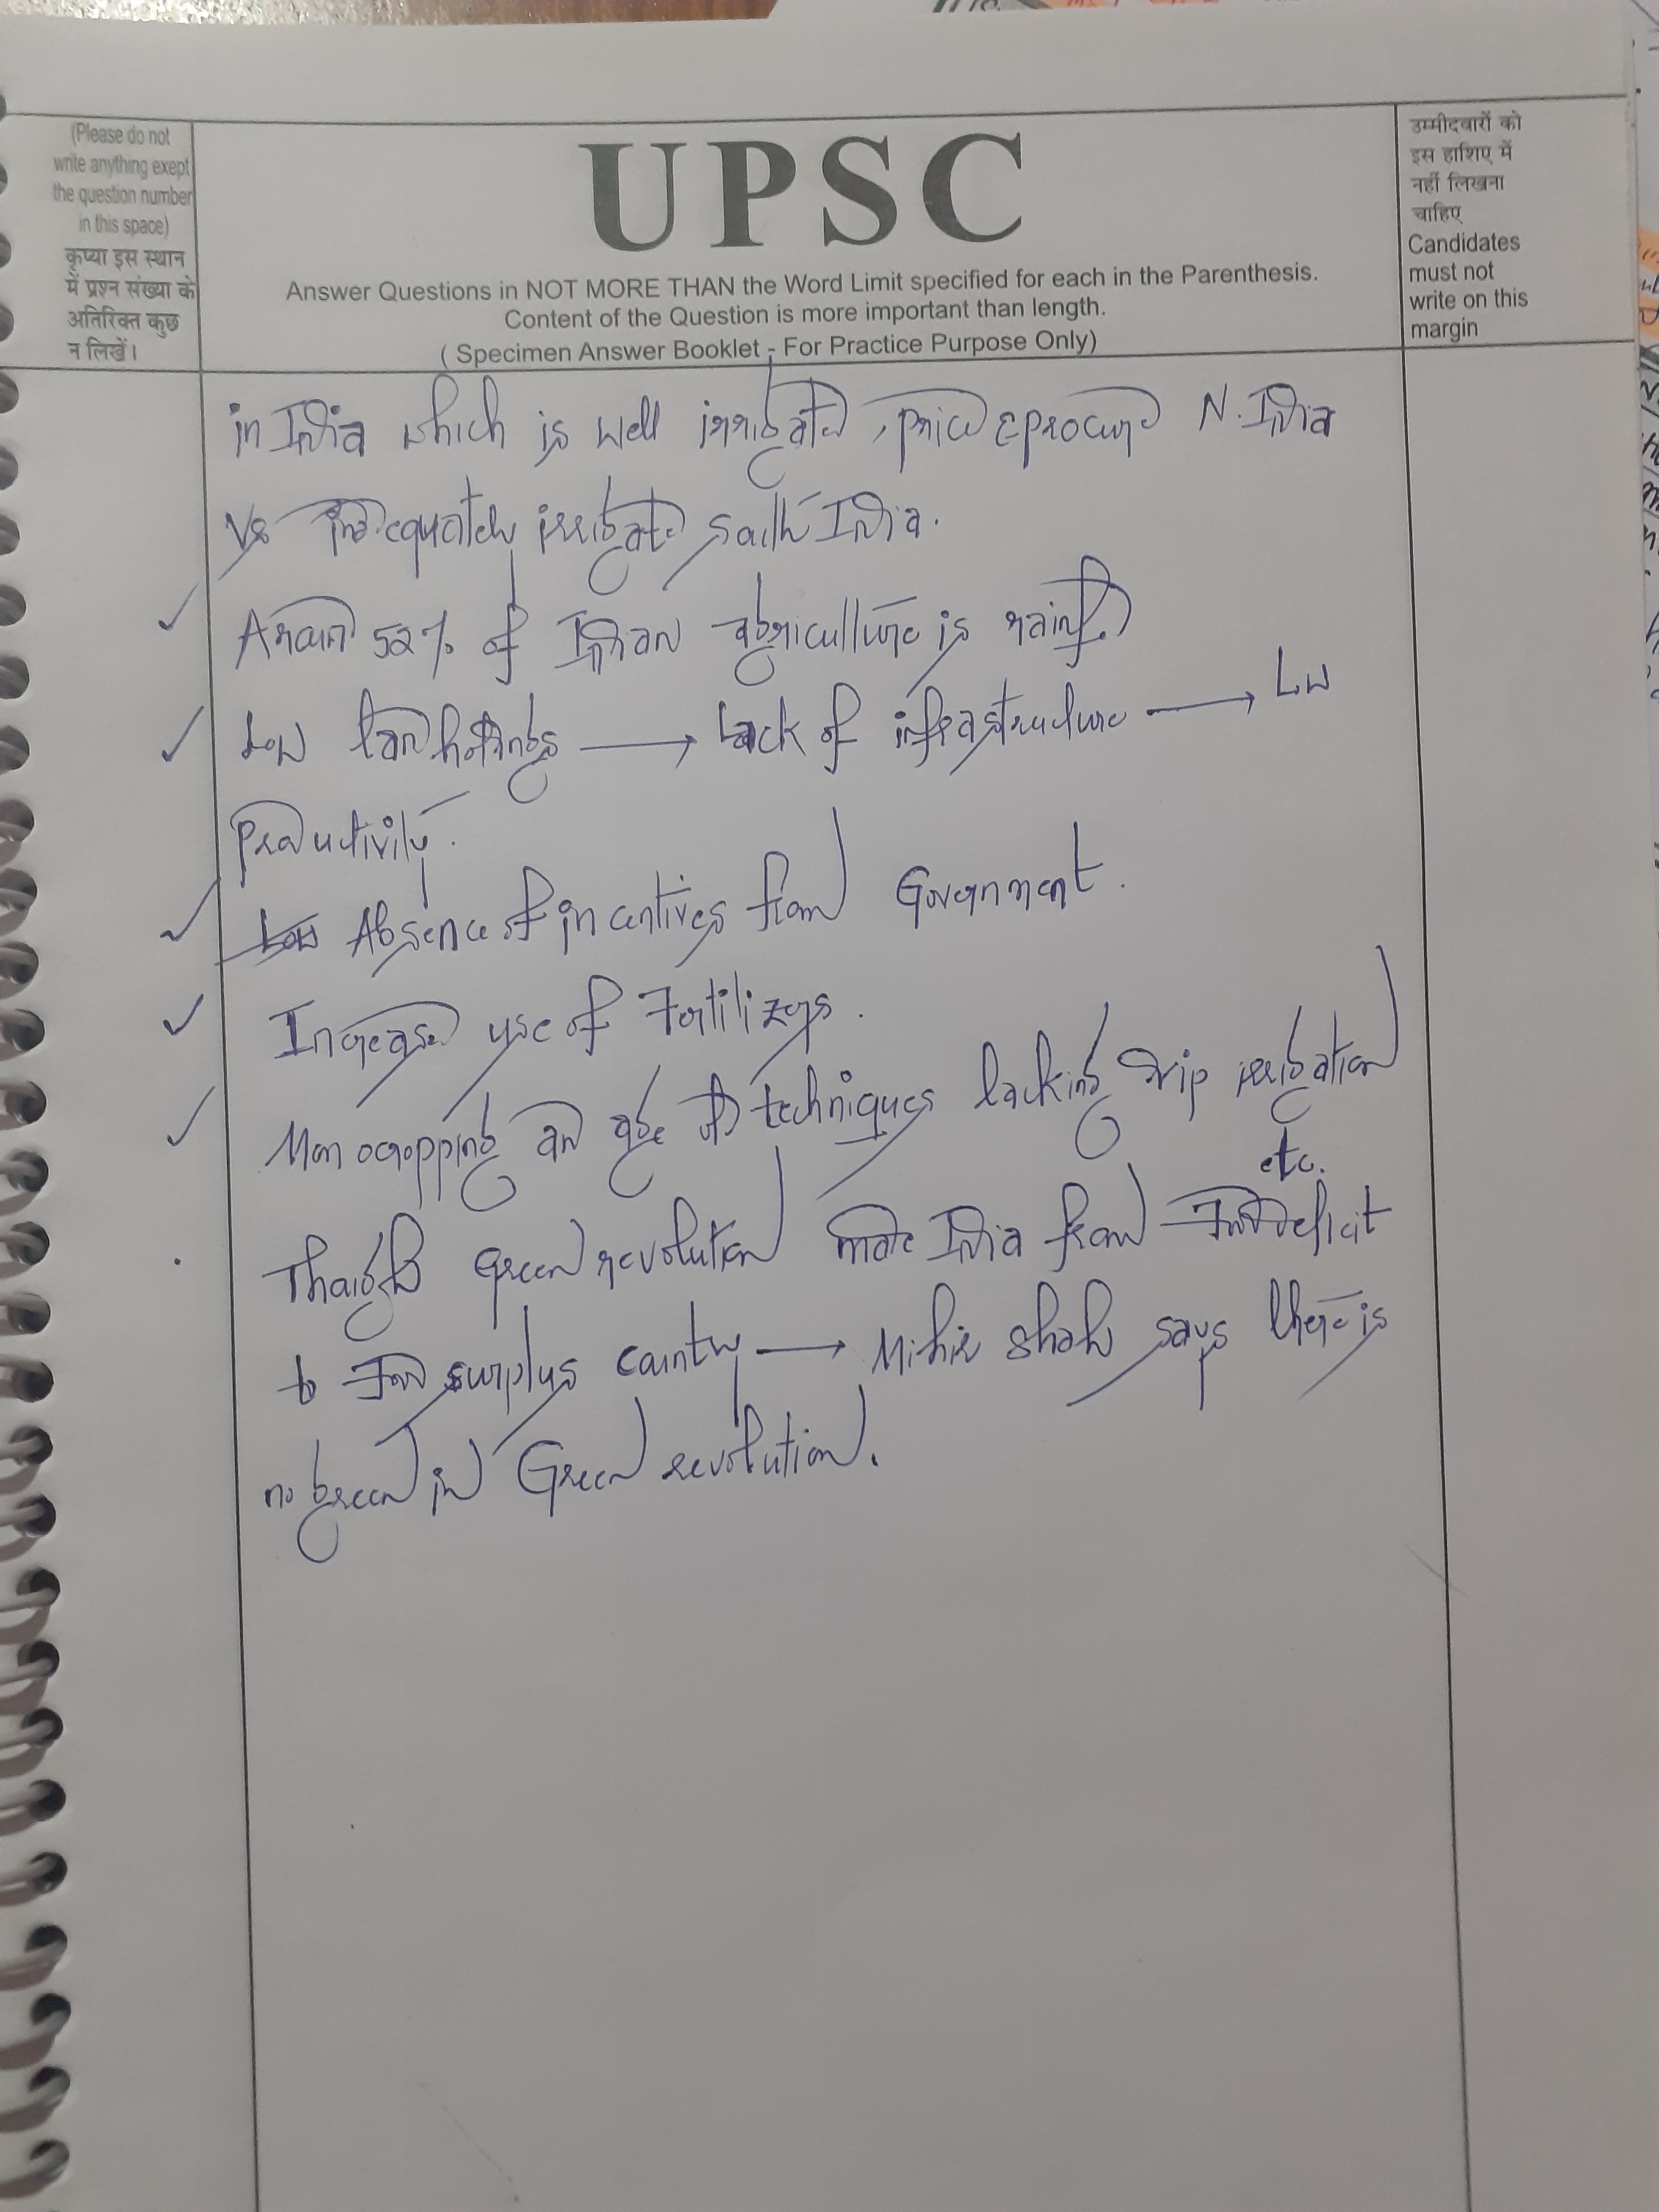 (Please do not
write anything exept
the question number
in this space)
कृप्या इस स्थान
में प्रश्न संख्या के
अतिरिक्त कुछ
न लिखें।
UPSC
Answer Questions in NOT MORE THAN the Word Limit specified for each in the Parenthesis.
Content of the Question is more important than length.
( Specimen Answer Booklet - For Practice Purpose Only)
उम्मीदवारों को
इस हाशिए में
नहीं लिखना
चाहिए
Candidates
must not
write on this
margin
in India which is well irrigated, price & procured N. India
Vs inadequately irrigated South India.
✓ Around 52% of Indian agriculture is rainfed
✓ Low land holdings → Lack of infrastructure → Low
Productivity.
✓ Absence of incentives from Government.
✓ Increased use of Fertilizers.
✓ Monocropping and age old techniques lacking drip irrigation
etc.
Though Green revolution made India from Food deficit
to Food surplus country → Mihir Shah says there is
no green in Green revolution.